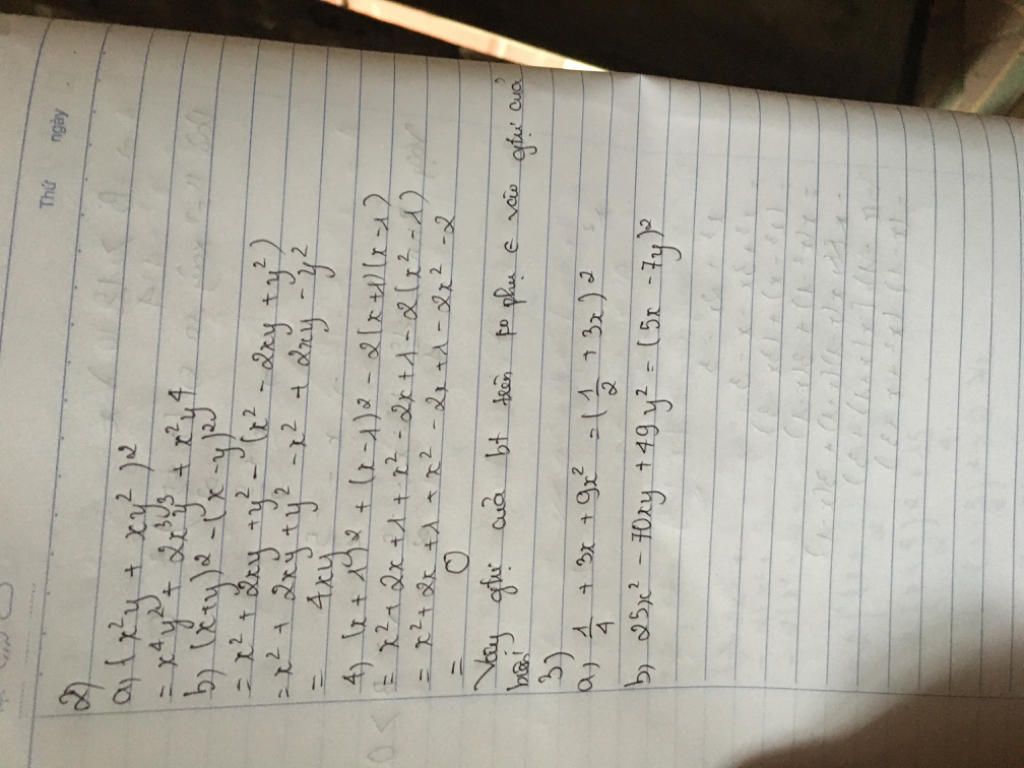 Thứ ngày
2)
a) (x²y + xy²)²
= x⁴y² + 2x³y³ + x²y⁴
b) (x+y)² - (x-y)²
= x² + 2xy + y² - (x² - 2xy + y²)
= x² + 2xy + y² - x² + 2xy - y²
= 4xy
4) (x+1)² + (x-1)² - 2(x+1)(x-1)
= x² + 2x + 1 + x² - 2x + 1 - 2(x² - 1)
= x² + 2x + 1 + x² - 2x + 1 - 2x² - 2
= 0
Vậy gtrị của bt trên ko phụ € vào gtrị của
biến
3)
a) 1/4 + 3x + 9x² = (1/2 + 3x)²
b) 25x² - 70xy + 49y² = (5x - 7y)²